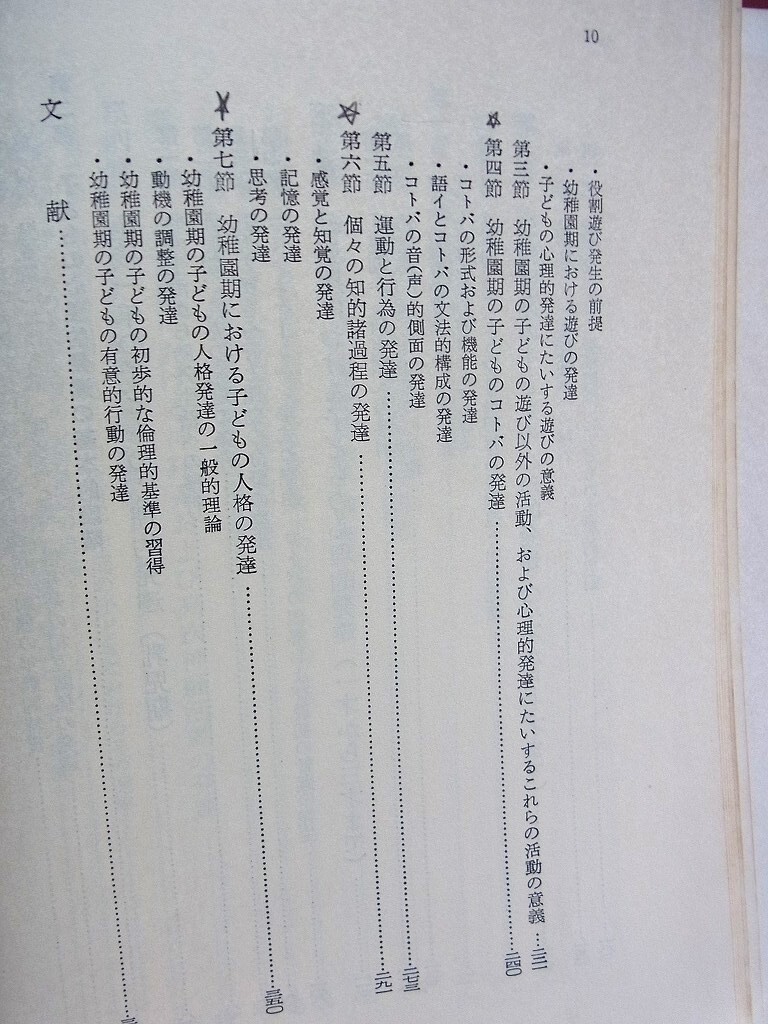 10
・役割遊び発生の前提
・幼稚園期における遊びの発達
・子どもの心理的発達にたいする遊びの意義
第三節　幼稚園期の子どもの遊び以外の活動、および心理的発達にたいするこれらの活動の意義…
第四節　幼稚園期の子どものコトバの発達……二四〇
・コトバの形式および機能の発達
・語イとコトバの文法的構成の発達
・コトバの音(声)的側面の発達
第五節　運動と行為の発達……二七三
第六節　個々の知的諸過程の発達……二九一
・感覚と知覚の発達
・記憶の発達
・思考の発達
第七節　幼稚園期における子どもの人格の発達……三五〇
・幼稚園期の子どもの人格発達の一般的理論
・動機の調整の発達
・幼稚園期の子どもの初歩的な倫理的基準の習得
・幼稚園期の子どもの有意的行動の発達
文　献……